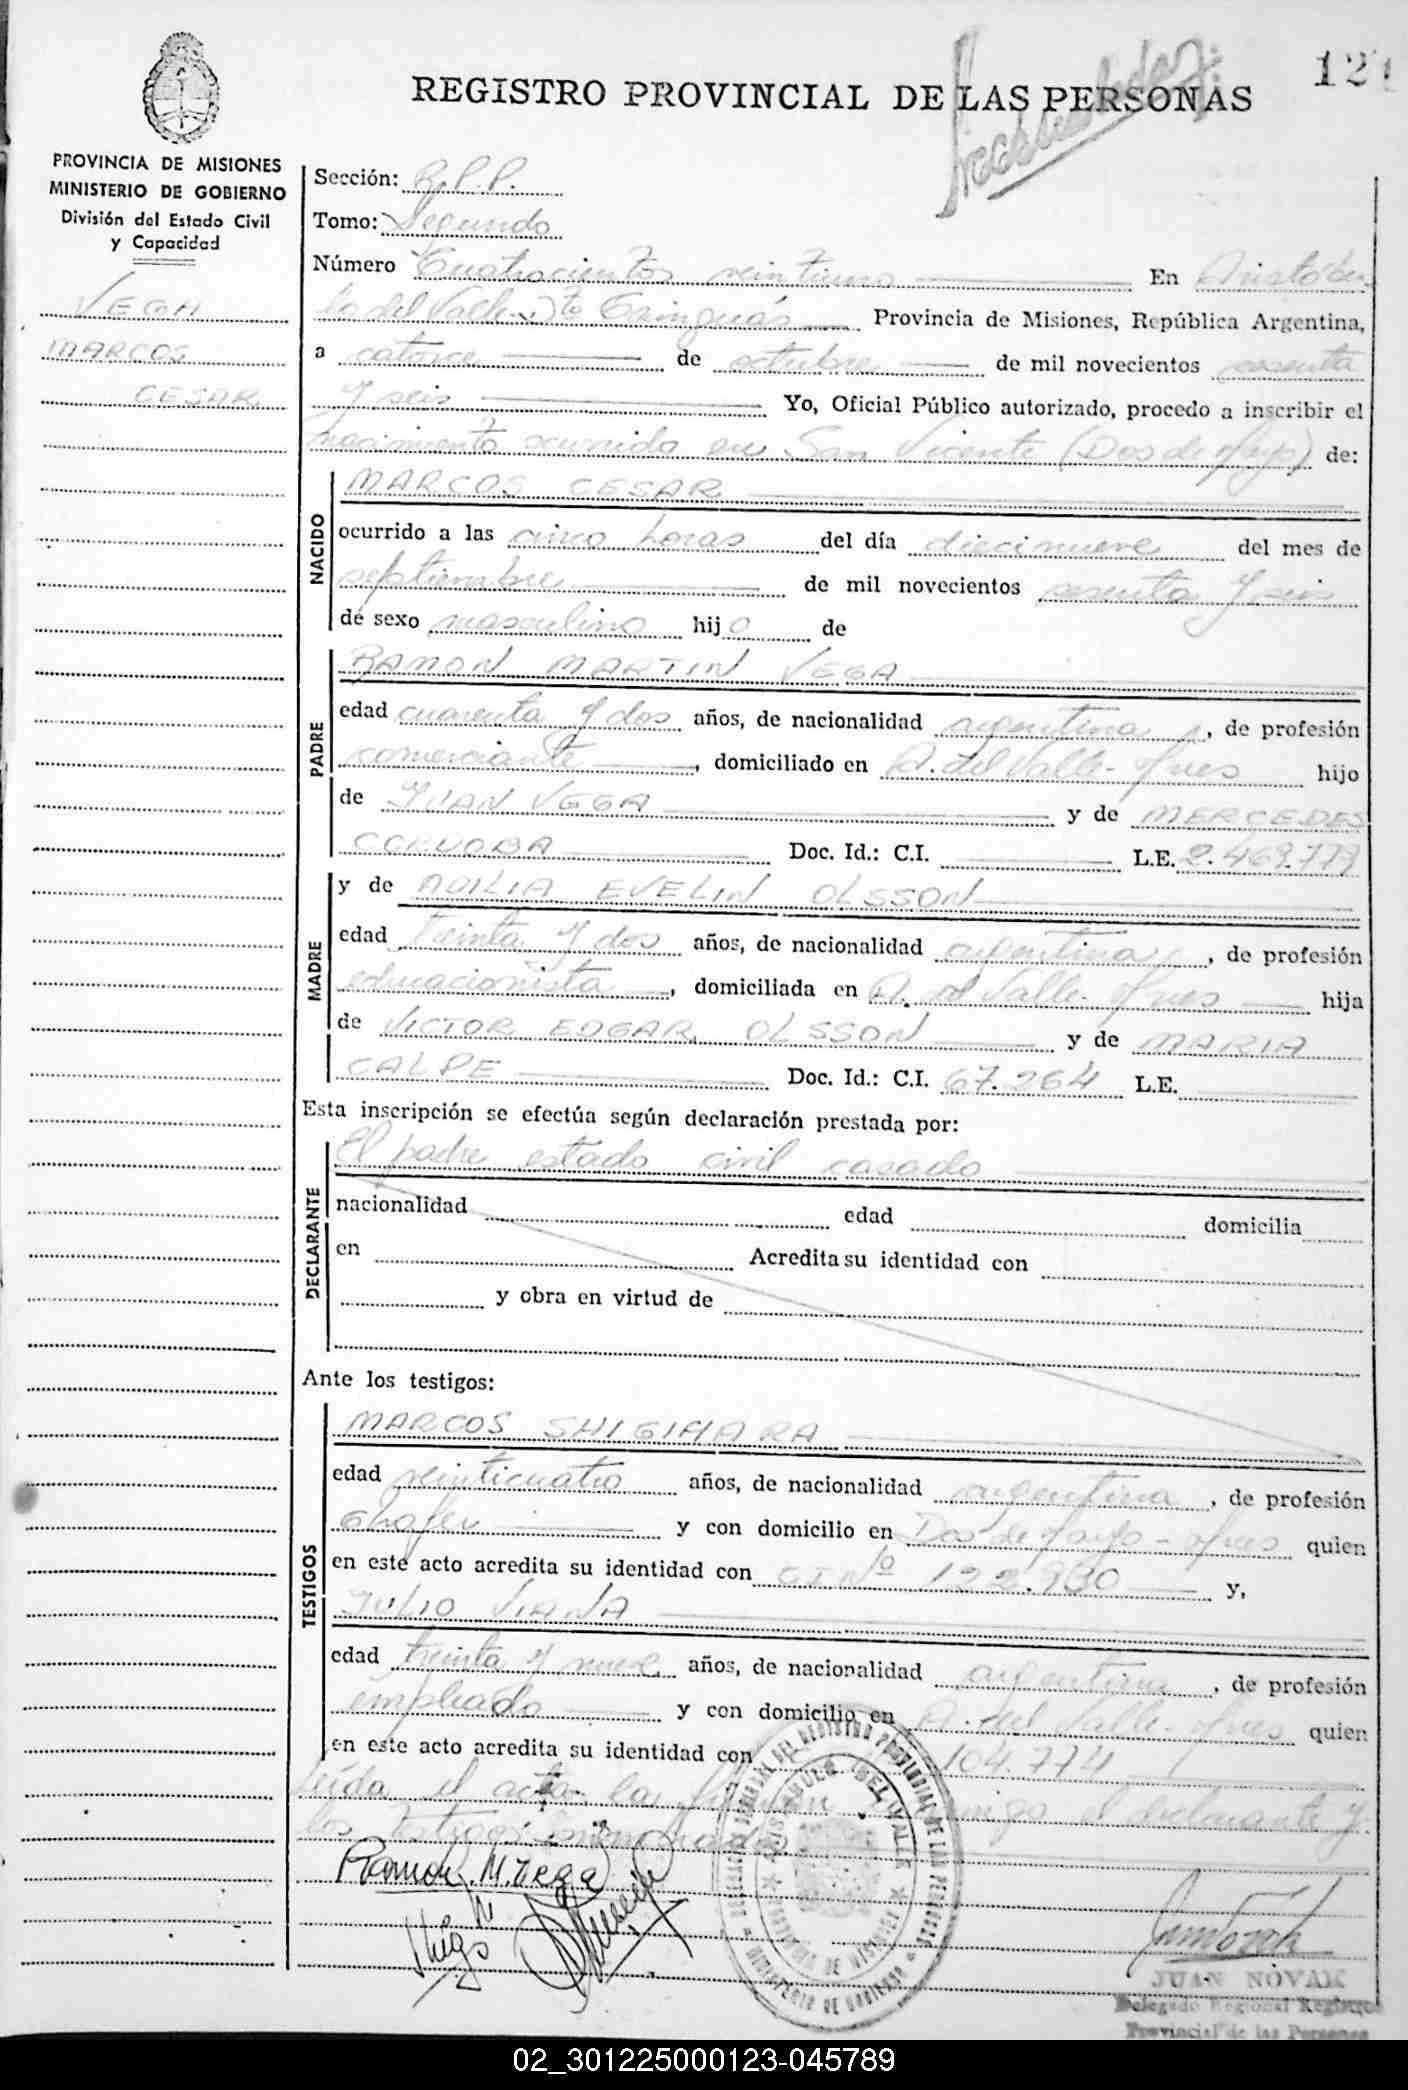 REGISTRO PROVINCIAL DE LAS PERSONAS
PROVINCIA DE MISIONES
MINISTERIO DE GOBIERNO
División del Estado Civil
y Capacidad
VEGA
MARCOS
CESAR
Sección: R.P.P.
Tomo: Segundo
Número Cuatrocientos veintiuno En Aristóbu
lo del Valle Dto Cainguás Provincia de Misiones, República Argentina,
a catorce de octubre de mil novecientos sesenta
y seis Yo, Oficial Público autorizado, procedo a inscribir el
nacimiento ocurrido en San Vicente (Dos de Mayo) de:
NACIDO
MARCOS CESAR
ocurrido a las cinco horas del día diecinueve del mes de
septiembre de mil novecientos sesenta y seis
de sexo masculino hijo de
PADRE
RAMON MARTIN VEGA
edad cuarenta y dos años, de nacionalidad argentina, de profesión
comerciante, domiciliado en A. del Valle - Mnes hijo
de JUAN VEGA y de MERCEDES
CORDOBA Doc. Id.: C.I. L.E. 2.469.779
MADRE
y de ADILIA EVELIN OLSSON
edad treinta y dos años, de nacionalidad argentina, de profesión
educacionista, domiciliada en A. del Valle - Mnes hija
de VICTOR EDGAR OLSSON y de MARIA
CALPE Doc. Id.: C.I. 67.264 L.E.
Esta inscripción se efectúa según declaración prestada por:
DECLARANTE
El padre estado civil casado
nacionalidad edad domicilia
en Acredita su identidad con
y obra en virtud de
Ante los testigos:
TESTIGOS
MARCOS SHIGIHARA
edad veinticuatro años, de nacionalidad argentina, de profesión
chofer y con domicilio en Dos de Mayo - Mnes quien
en este acto acredita su identidad con C I Nº 122.930 y,
JULIO VIANA
edad treinta y nueve años, de nacionalidad argentina, de profesión
empleado y con domicilio en A. del Valle - Mnes quien
en este acto acredita su identidad con 104.774
Leída el acta la firman conmigo el declarante y
los testigos
Ramon M. Vega
JUAN NOVAK
Delegado Regional Registro
Provincial de las Personas
02_301225000123-045789